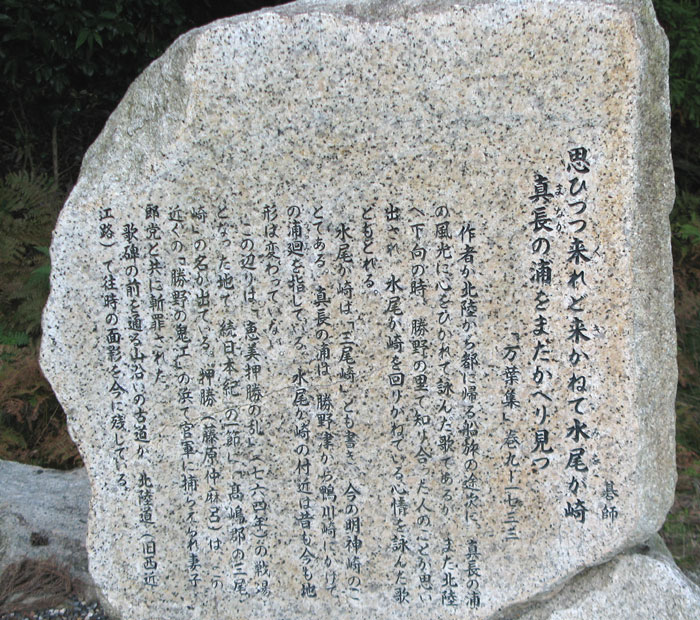 思ひつつ来れど来かねて水尾が崎
真長の浦をまたかへり見つ
碁師
「万葉集」巻九―一七三三
作者が北陸から都に帰る船旅の途次に、真長の浦
の風光に心をひかれて詠んだ歌であるが、また北陸
へ下向の時、勝野の里で知り合った人のことが思い
出され、水尾が崎を回りかねている心情を詠んだ歌
ともとれる。
水尾が崎は「三尾崎」とも書き、今の明神崎のこ
とである。真長の浦は、勝野津から鴨川崎にかけて
の浦廻を指している。水尾が崎の付近は昔も今も地
形は変わっていない。
この辺りは、「恵美押勝の乱」(七六四年)の戦場
となった地で「続日本紀」の一節に、「高嶋郡の三尾
崎」の名が出ている。押勝(藤原仲麻呂)は、この
近くの「勝野の鬼江」の浜で官軍に捕らえられ妻子
郎党と共に斬罪された。
歌碑の前を通る山沿いの古道が、北陸道(旧西近
江路)で往時の面影を今に残している。